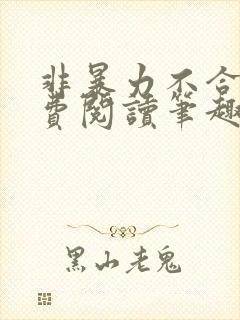 非暴力不合
費閱讀筆趣
黑山老鬼